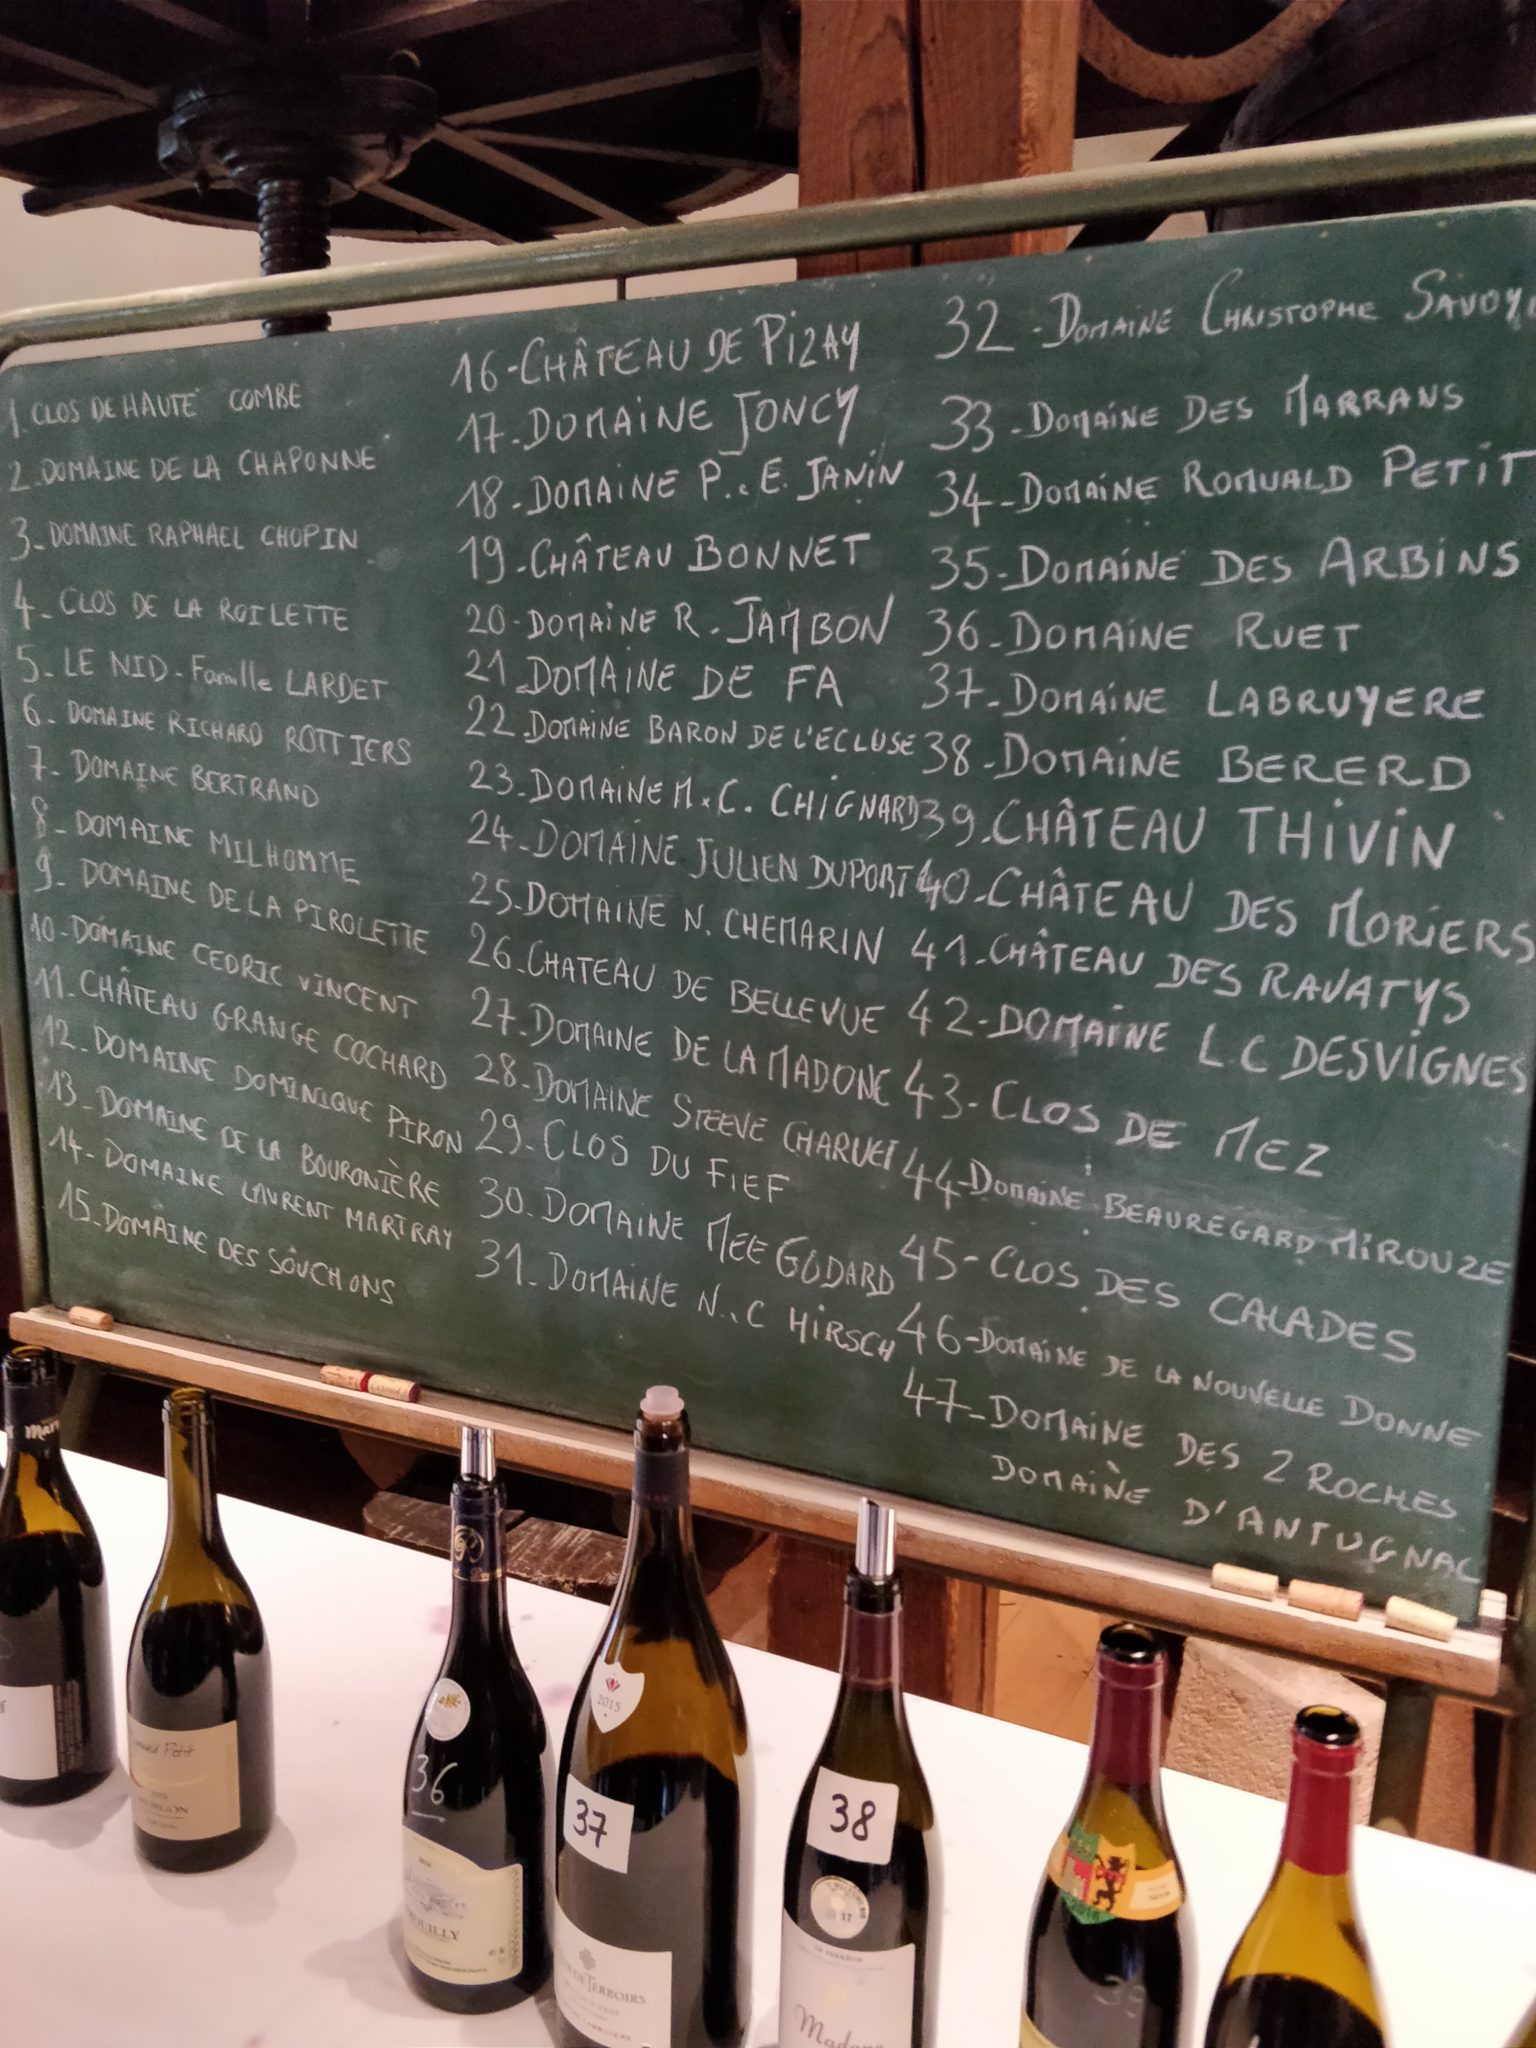 1. CLOS DE HAUTE COMBE
2. DOMAINE DE LA CHAPONNE
3- DOMAINE RAPHAEL CHOPIN
4- CLOS DE LA ROILETTE
5- LE NID - Famille LARDET
6- DOMAINE RICHARD ROTTIERS
7- DOMAINE BERTRAND
8- DOMAINE MILHOMME
9- DOMAINE DE LA PIROLETTE
10- DOMAINE CEDRIC VINCENT
11- CHÂTEAU GRANGE COCHARD
12- DOMAINE DOMINIQUE PIRON
13- DOMAINE DE LA BOURONIÈRE
14- DOMAINE LAURENT MARTRAY
15- DOMAINE DES SOUCHONS
16- CHÂTEAU DE PIZAY
17- DOMAINE JONCY
18- DOMAINE P. & E. JANIN
19- CHÂTEAU BONNET
20- DOMAINE R. JAMBON
21- DOMAINE DE FA
22- DOMAINE BARON DE L'ECLUSE
23- DOMAINE M. & C. CHIGNARD
24- DOMAINE JULIEN DUPORT
25- DOMAINE N. CHEMARIN
26- CHATEAU DE BELLEVUE
27- DOMAINE DE LA MADONE
28- DOMAINE STEEVE CHARVET
29- CLOS DU FIEF
30- DOMAINE MEE GODARD
31- DOMAINE N. & C HIRSCH
32- DOMAINE CHRISTOPHE SAVOY
33- DOMAINE DES MARRANS
34- DOMAINE ROMUALD PETIT
35- DOMAINE DES ARBINS
36- DOMAINE RUET
37- DOMAINE LABRUYERE
38- DOMAINE BERERD
39- CHÂTEAU THIVIN
40- CHÂTEAU DES MORIERS
41- CHÂTEAU DES RAVATYS
42- DOMAINE L.C DESVIGNES
43- CLOS DE MEZ
44- DOMAINE BEAUREGARD MIROUZE
45- CLOS DES CALADES
46- DOMAINE DE LA NOUVELLE DONNE
47- DOMAINE DES 2 ROCHES
DOMAINE D'ANTUGNAC
Petit
36
2015
37
DE TERROIRS
38
2017
39